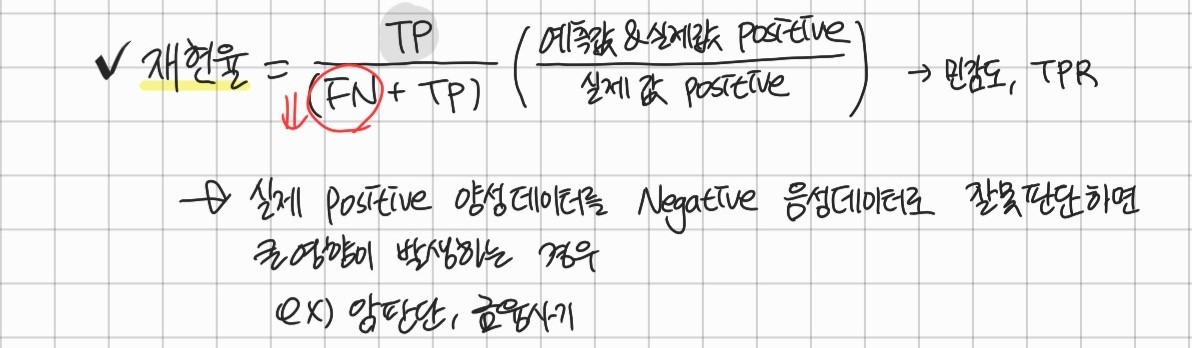 ✓ 재현율 = TP / (FN + TP) (예측값 & 실제값 positive / 실제 값 positive) → 민감도, TPR
→ 실제 Positive 양성데이터를 Negative 음성데이터로 잘못판단하면
큰영향이 발생하는 경우
ex) 암판단, 금융사기